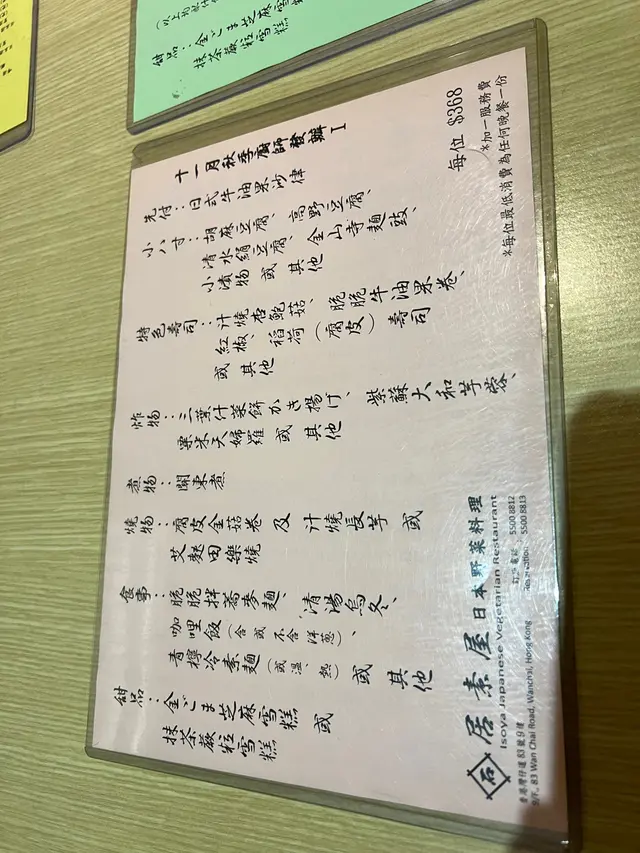 十一月秋季廚師發辦 I
先付：日式牛油果沙律
小八寸：胡麻豆腐、高野豆腐、
清水絹豆腐、金山寺麵豉、
小漬物 或 其他
特色壽司：汁燒杏鮑菇、脆脆牛油果卷、
紅椒、稻荷（腐皮）壽司
或 其他
炸物：三葉什菜餅かき揚げ、紫蘇大和芋蓉、
粟米天婦羅 或 其他
煮物：關東煮
燒物：腐皮金菇卷 及 汁燒長芋 或
艾麩田樂燒
食事：脆脆拌蕎麥麵、清湯烏冬、
咖哩飯（含或不含洋蔥）、
青檸冷素麵（或溫、熱） 或 其他
甜品：金ごま芝麻雪糕 或
抹茶蕨粒雪糕
每位 $368
*加一服務費
*每位最低消費為任何晚餐一份
石
居素屋日本野菜料理
Isoya Japanese Vegetarian Restaurant
香港灣仔道83號9樓
9/F., 83 Wan Chai Road, Wanchai, Hong Kong
訂座電話 5500 8812
Reservation: 5500 8813
甜品：金ごま芝麻雪糕
抹茶蕨粒雪糕